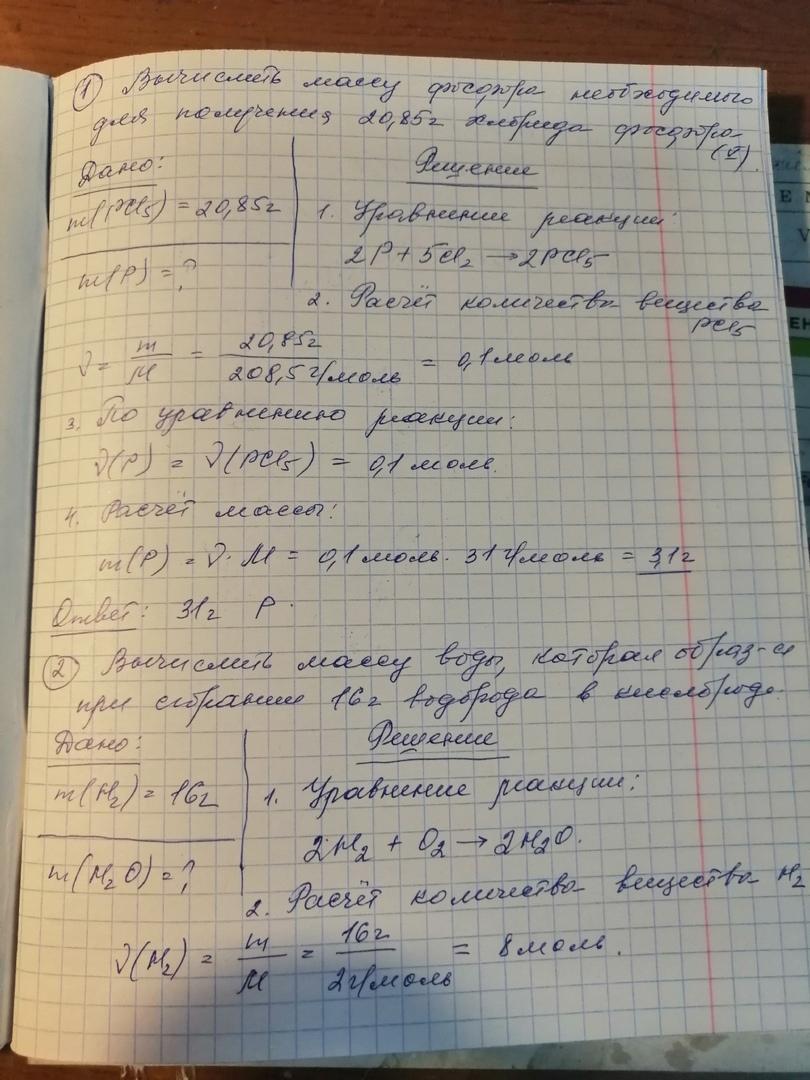 ① Вычислить массу фосфора необходимого
для получения 20,85г хлорида фосфора
(V).
Дано:
Решение
m(PCl5) = 20,85г
1. Уравнение реакции:
2P + 5Cl2 → 2PCl5
m(P) = ?
2. Расчёт количества вещества
PCl5
ν = m/M = 20,85г / 208,5 г/моль = 0,1 моль
3. По уравнению реакции:
ν(P) = ν(PCl5) = 0,1 моль.
4. Расчёт массы:
m(P) = ν · M = 0,1 моль · 31 г/моль = 3,1г
Ответ: 31г P.
② Вычислить массу воды, которая образ-ся
при сгорании 16г водорода в кислороде.
Дано:
Решение
m(H2) = 16г
1. Уравнение реакции:
2H2 + O2 → 2H2O.
m(H2O) = ?
2. Расчёт количества вещества H2
ν(H2) = m/M = 16г / 2 г/моль = 8 моль.